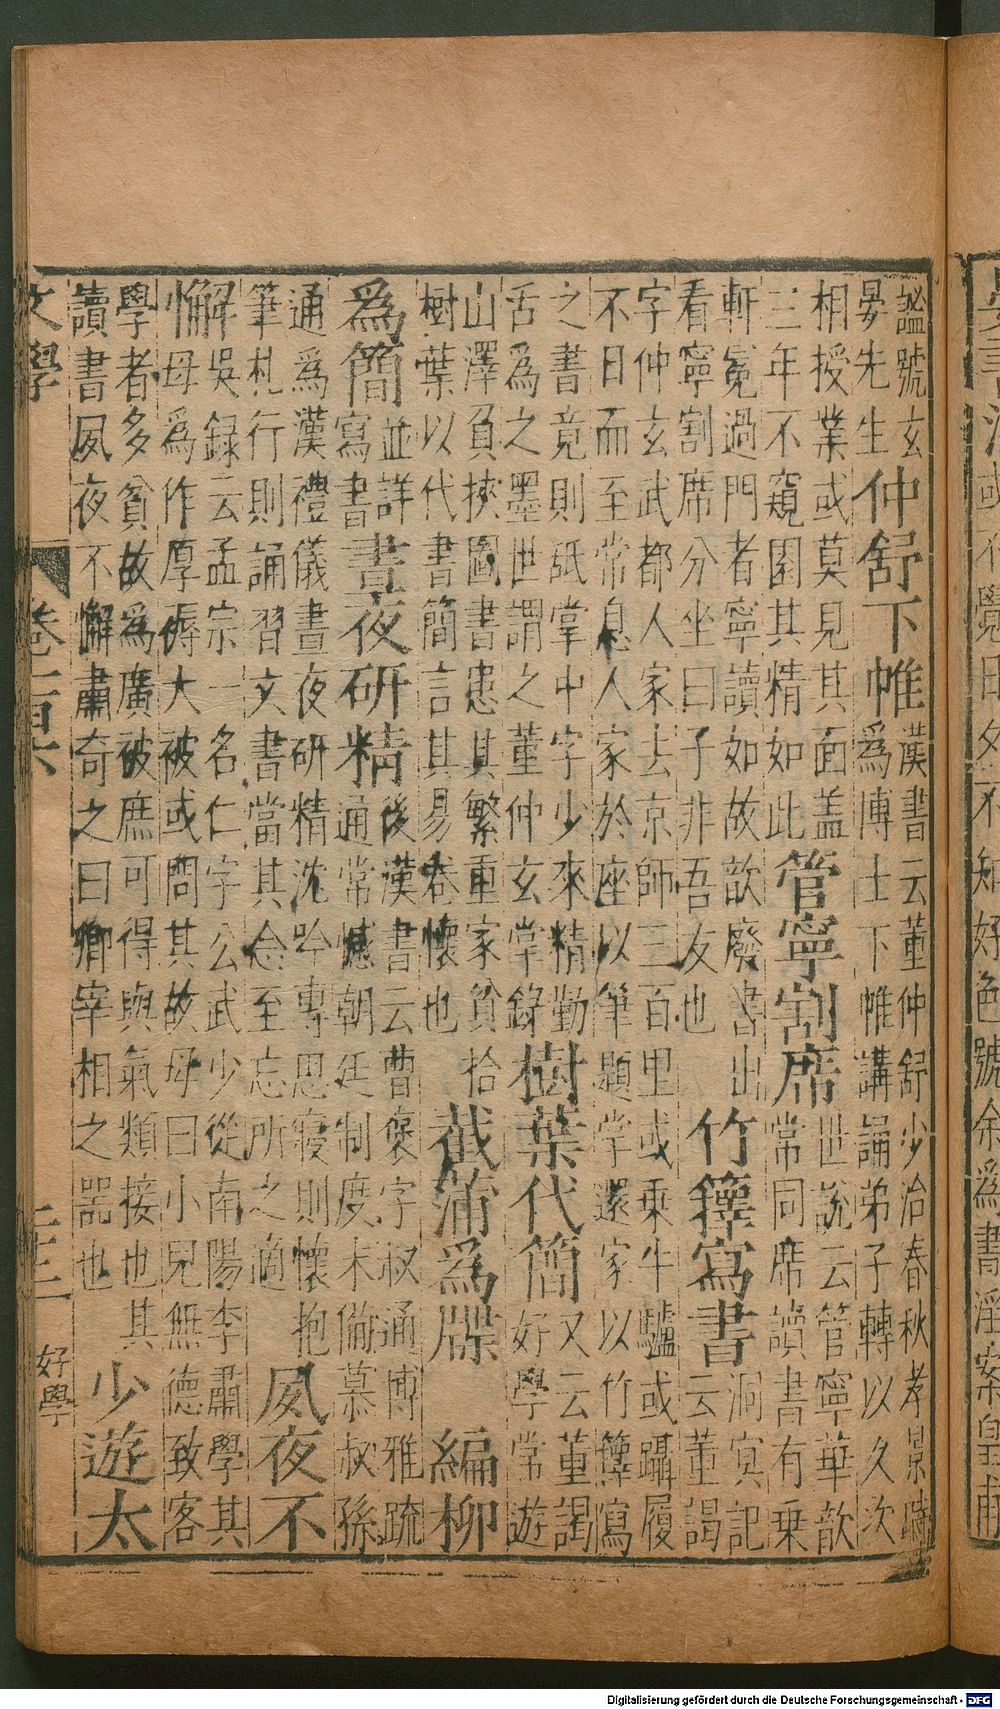 謚號玄
晏先生
仲舒下帷
漢書云董仲舒少治春秋孝景時
爲博士下帷講誦弟子轉以久次
相授業或莫見其面盖
三年不窺園其精如此
管寧割席
世説云管寧華歆
常同席讀書有乗
軒冕過門者寧讀如故歆廢書出
看寧割席分坐曰子非吾友也
竹籜寫書
洞冥記
云董謁
字仲玄武都人家去京師三百里或乗牛驢或躡履
不日而至常息人家於座以筆題掌還家以竹籜寫
之書竟則舐掌中字少來精勤
舌爲之墨世謂之董仲玄掌錄
樹葉代簡
又云董謁
好學常遊
山澤負挾圖書患其繁重家貧拾
樹葉以代書簡言其易卷懷也
截蒲爲牒
編柳
爲簡
並詳
寫書
晝夜研精
後漢書云曹褒字叔通博雅疏
通常憾朝廷制度未備慕叔孫
通爲漢禮儀晝夜研精沈吟專思寢則懷抱
筆札行則誦習文書當其念至忘所之適
夙夜不
解
吳録云孟宗一名仁字公武少從南陽李肅學其
母爲作厚褥大被或問其故母曰小兒無德致客
學者多貧故爲廣被庶可得與氣類接也其
讀書夙夜不懈肅奇之曰卿宰相之器也
少遊太
文學
卷一百六
三三
好學
或不覺日夕不知好色號余爲書淫案皇甫
Digitalisierung gefördert durch die Deutsche Forschungsgemeinschaft - DFG